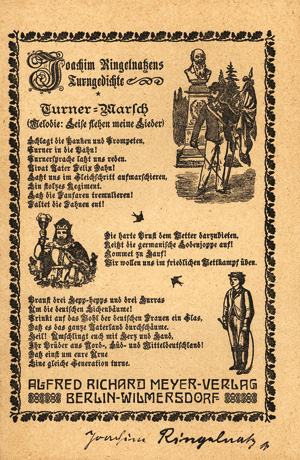 Joachim Ringelnatzens
Turngedichte
Turner-Marsch
(Melodie: Leise flehen meine Lieder)
Schlagt die Pauken und Trompeten,
Turner in die Bahn!
Turnersprache laßt uns reden.
Vivat Vater Felix Dahn!
Laßt uns im Gleichschritt aufmarschieren,
Ein stolzes Regiment.
Laß die Fanfaren tremulieren!
Faltet die Fahnen ent!
Die harte Brust dem Wetter darzubieten,
Reißt die germanische Lodenjoppe auf!
Kommet zu Hauf!
Wir wollen uns im friedlichen Wettkampf üben.
Braust drei Hepp-hepps und drei Hurras
Um die deutschen Eichenbäume!
Trinkt auf das Wohl der deutschen Frauen ein Glas,
Daß es das ganze Vaterland durchschäume.
Heil! Umschlingt euch mit Herz und Hand,
Ihr Brüder aus Nord-, Süd- und Mitteldeutschland!
Daß einst um eure Urne
Eine gleiche Generation turne.
ALFRED RICHARD MEYER-VERLAG
BERLIN-WILMERSDORF
Joachim Ringelnatz